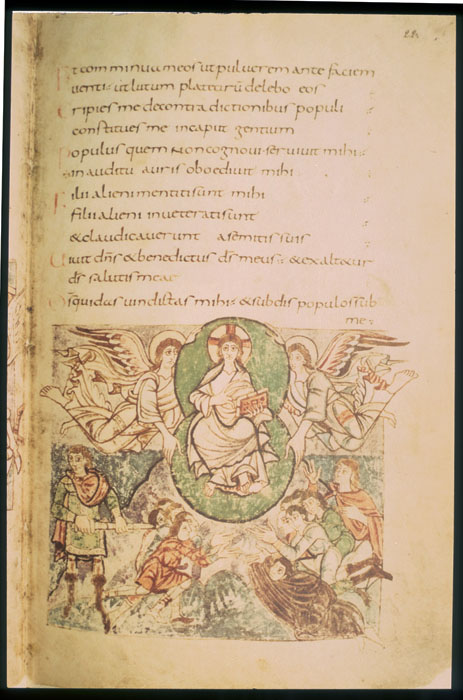 22
Et comminuā eos ut puluerem ante faciem
uenti: ut lutum platearū delebo eos
Eripies me de contradictionibus populi
constitues me in caput gentium
Populus quem non cognoui seruiuit mihi:
in auditu auris oboediuit mihi
Filii alieni mentiti sunt mihi
filii alieni inueterati sunt
& claudicauerunt a semitis suis
Uiuit dn̄s & benedictus ds̄ meus: & exaltetur
ds̄ salutis meae
Ds̄ qui das uindictas mihi: & subdis populos sub
me: